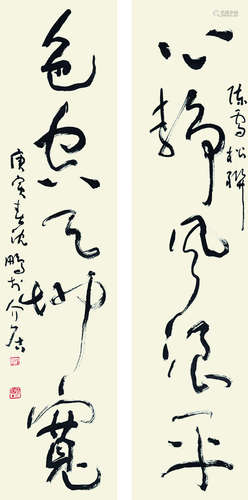 心静风浪平
陈雪松联
色空天地宽
庚寅春沈
鹏于介居